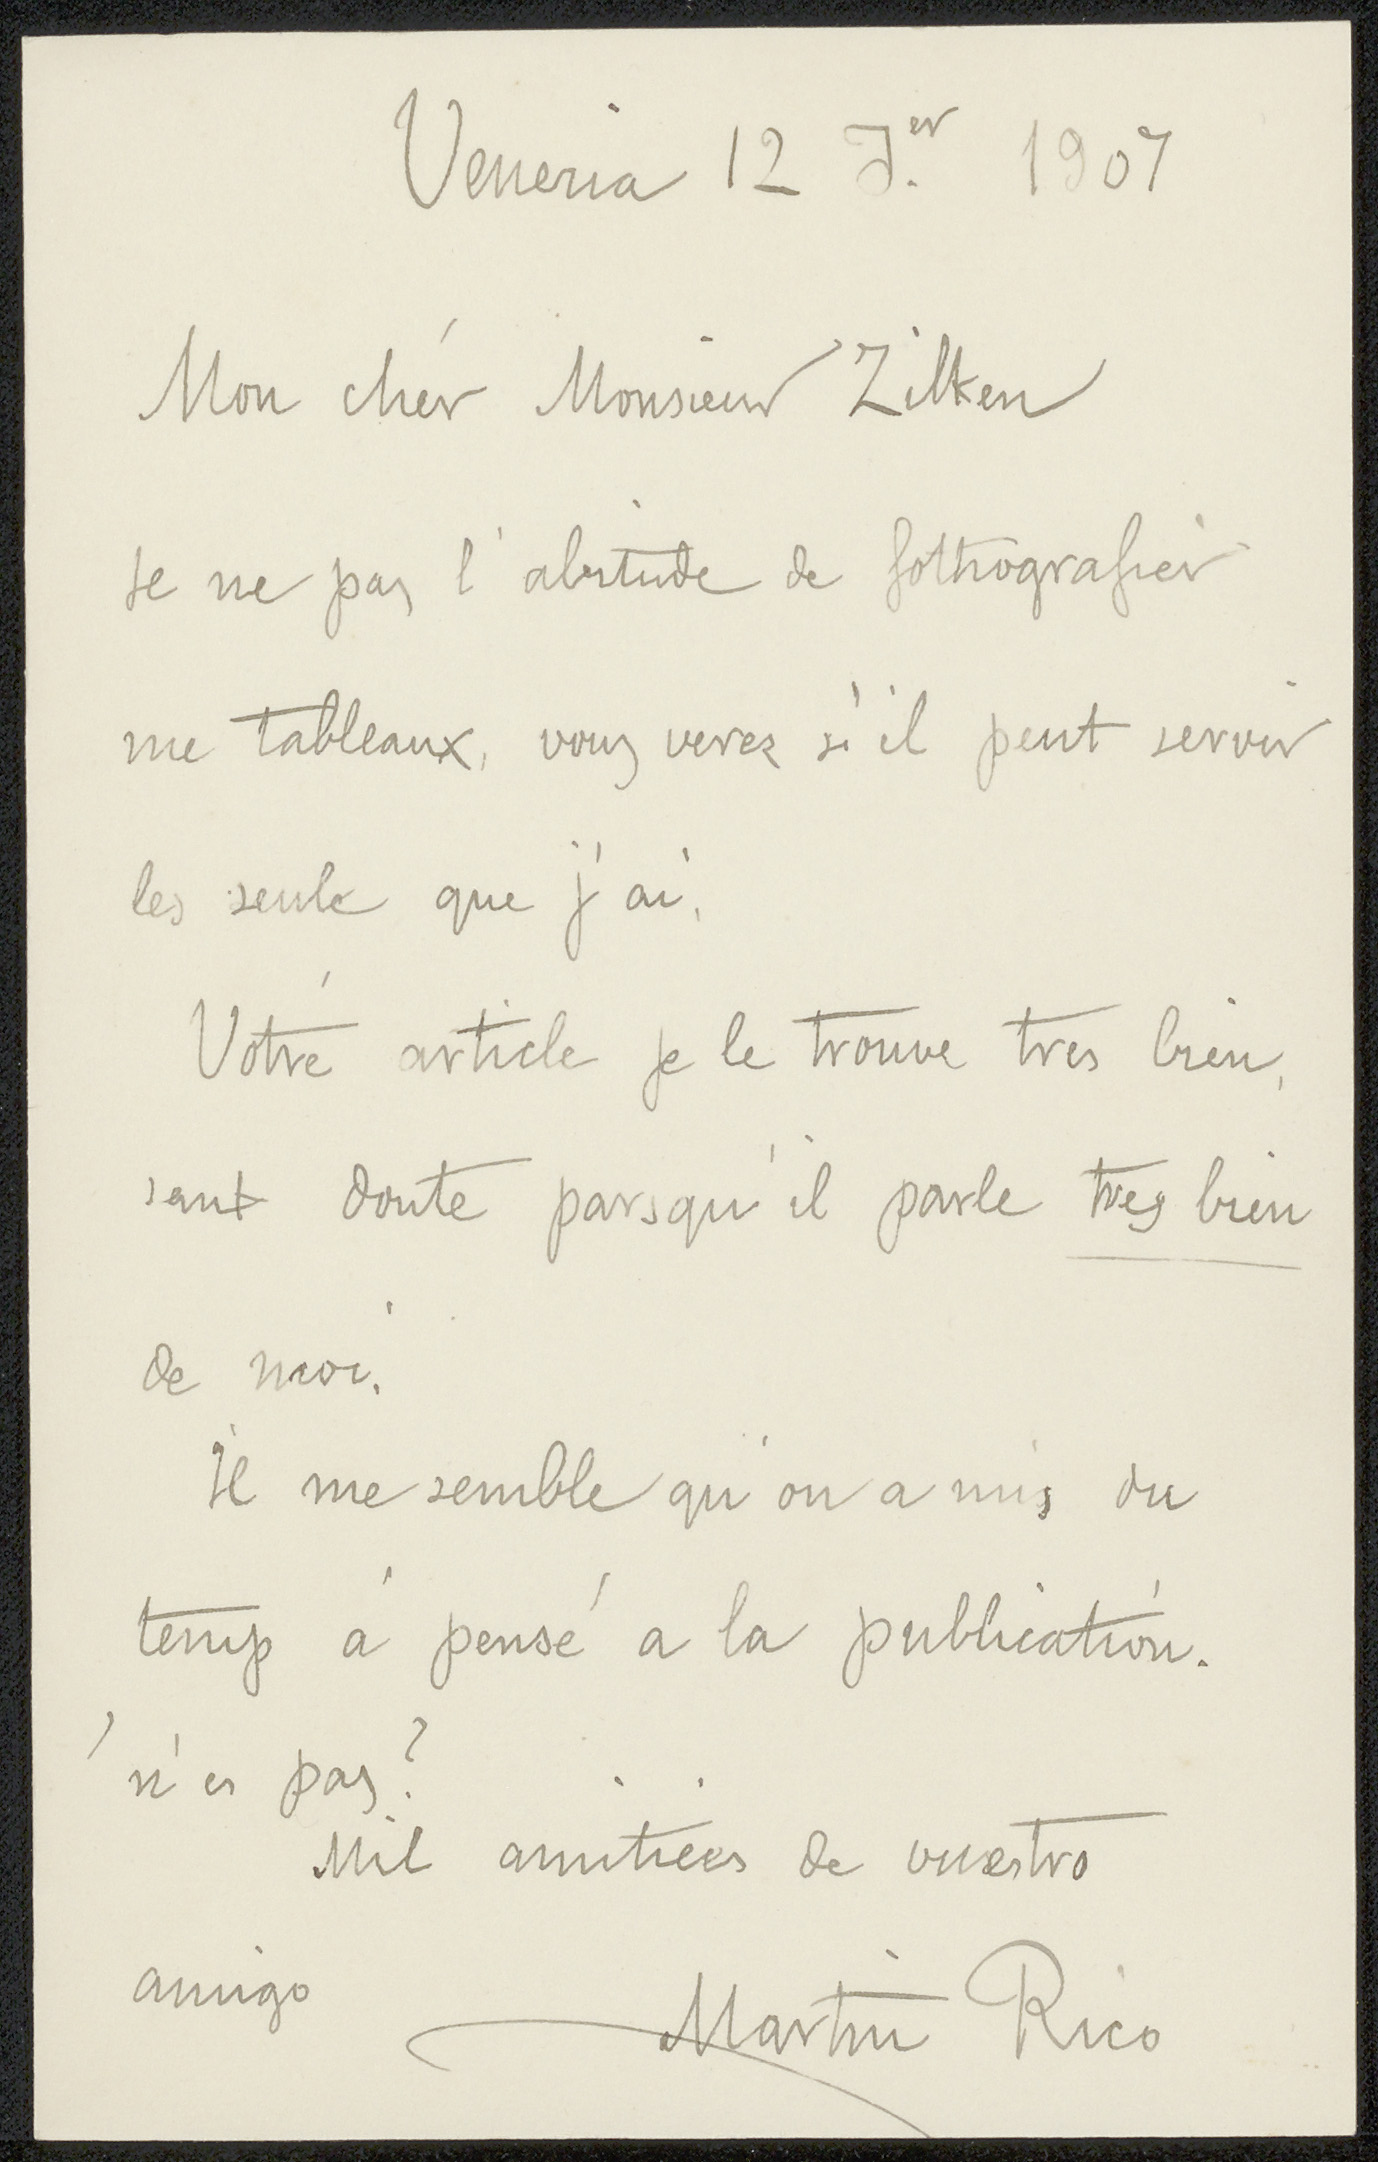 Venezia 12 J.er 1907
Mon chér Monsieur Zilken
Je ne pas l'abitude de fothografier
me tableaux, vous verez si'il peut servir
les seule que j'ai,
Votré article je le trouve tres bien,
sant doute parsqu'il parle tres bien
de moi.
Il me semble qu'on a mis du
temp á pensé a la publicatión.
n'es pas?
Mil amitiees de vuestro
amigo Martin Rico